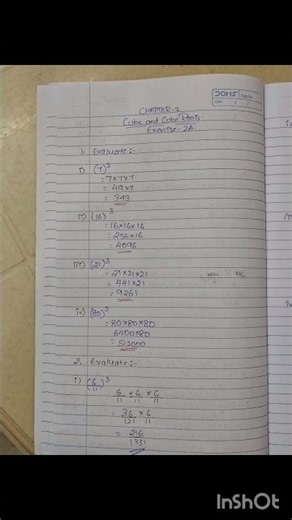 DOMS
CHAPTER-2
Cube and Cube Roots
Exercise-2A
1. Evaluate:-
i) (7)³
= 7×7×7
= 49×7
= 343
ii) (16)³
= 16×16×16
= 256×16
= 4096
iii) (21)³
= 21×21×21
= 441×21
= 9261
iv) (80)³
= 80×80×80
6400×80
= 512000
2. Evaluate:-
i) (6/11)³
6/11 × 6/11 × 6/11
= 36/121 × 6/11
= 216/1331
InShOt